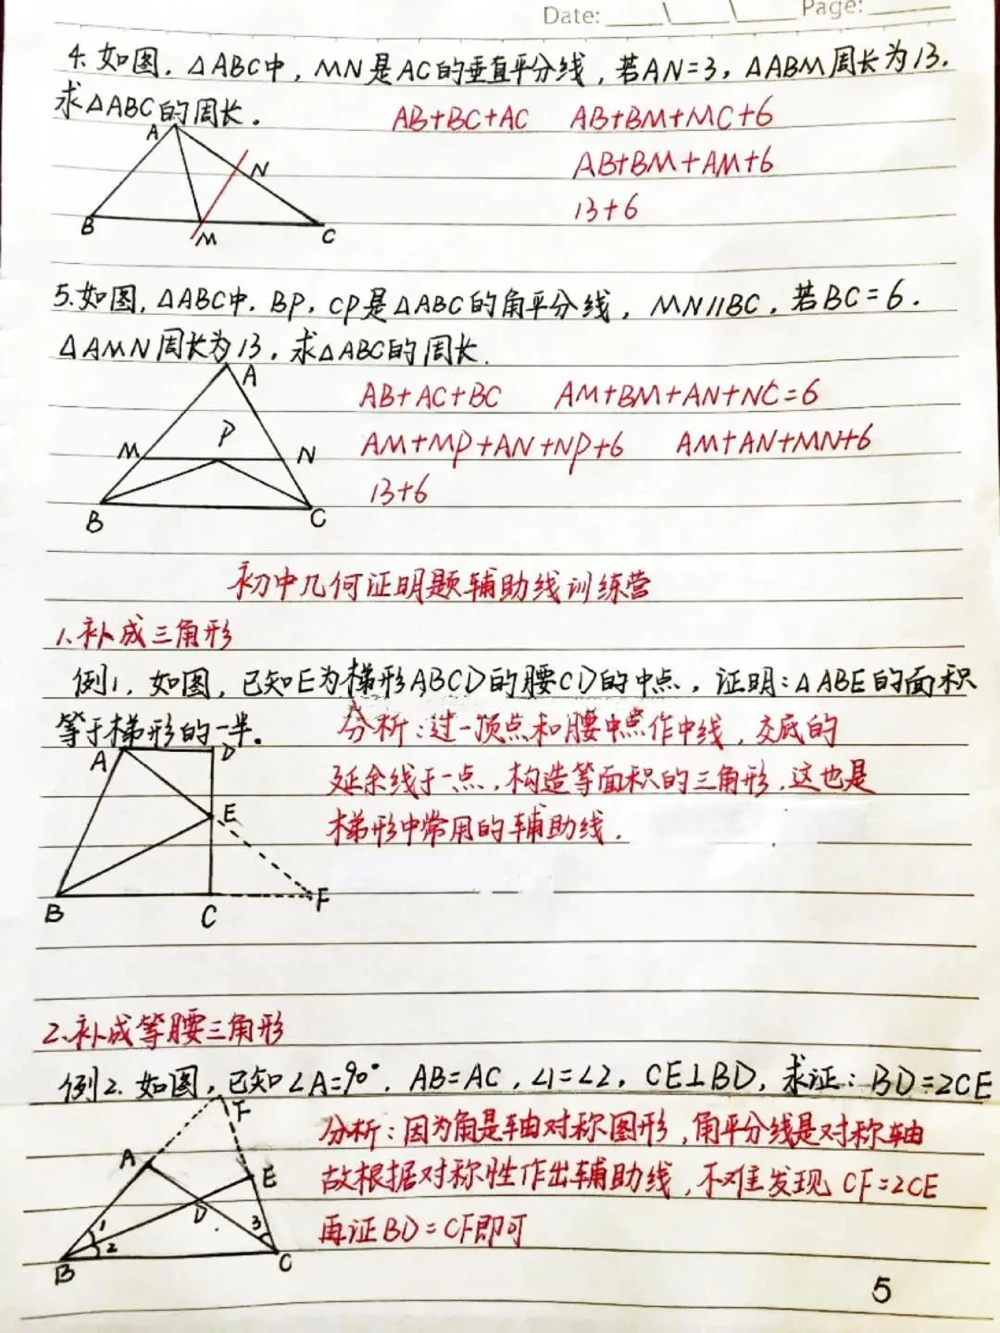 Date: ____\____\____ Page: ____
4. 如图，△ABC中，MN是AC的垂直平分线，若AN=3，△ABM周长为13.
求△ABC的周长。 AB+BC+AC AB+BM+MC+6
AB+BM+AM+6
13+6
A
N
B
M
C
5.如图，△ABC中，BP，CP是△ABC的角平分线，MN∥BC，若BC=6.
△AMN周长为13，求△ABC的周长.
AB+AC+BC AM+BM+AN+NC=6
AM+MP+AN+NP+6 AM+AN+MN+6
13+6
A
P
M
N
B
C
初中几何证明题辅助线训练营
1.补成三角形
例1，如图，已知E为梯形ABCD的腰CD的中点，证明：△ABE的面积
等于梯形的一半。 分析：过一顶点和腰中点作中线，交底的
延余线于一点，构造等面积的三角形.这也是
梯形中常用的辅助线.
A
D
E
B
C
F
2.补成等腰三角形
例2.如图，已知∠A=90°，AB=AC，∠1=∠2，CE⊥BD，求证：BD=2CE
分析：因为角是轴对称图形，角平分线是对称轴
故根据对称性作出辅助线，不难发现 CF=2CE
再证BD=CF即可
F
A
E
D
1
2
3
B
C
5